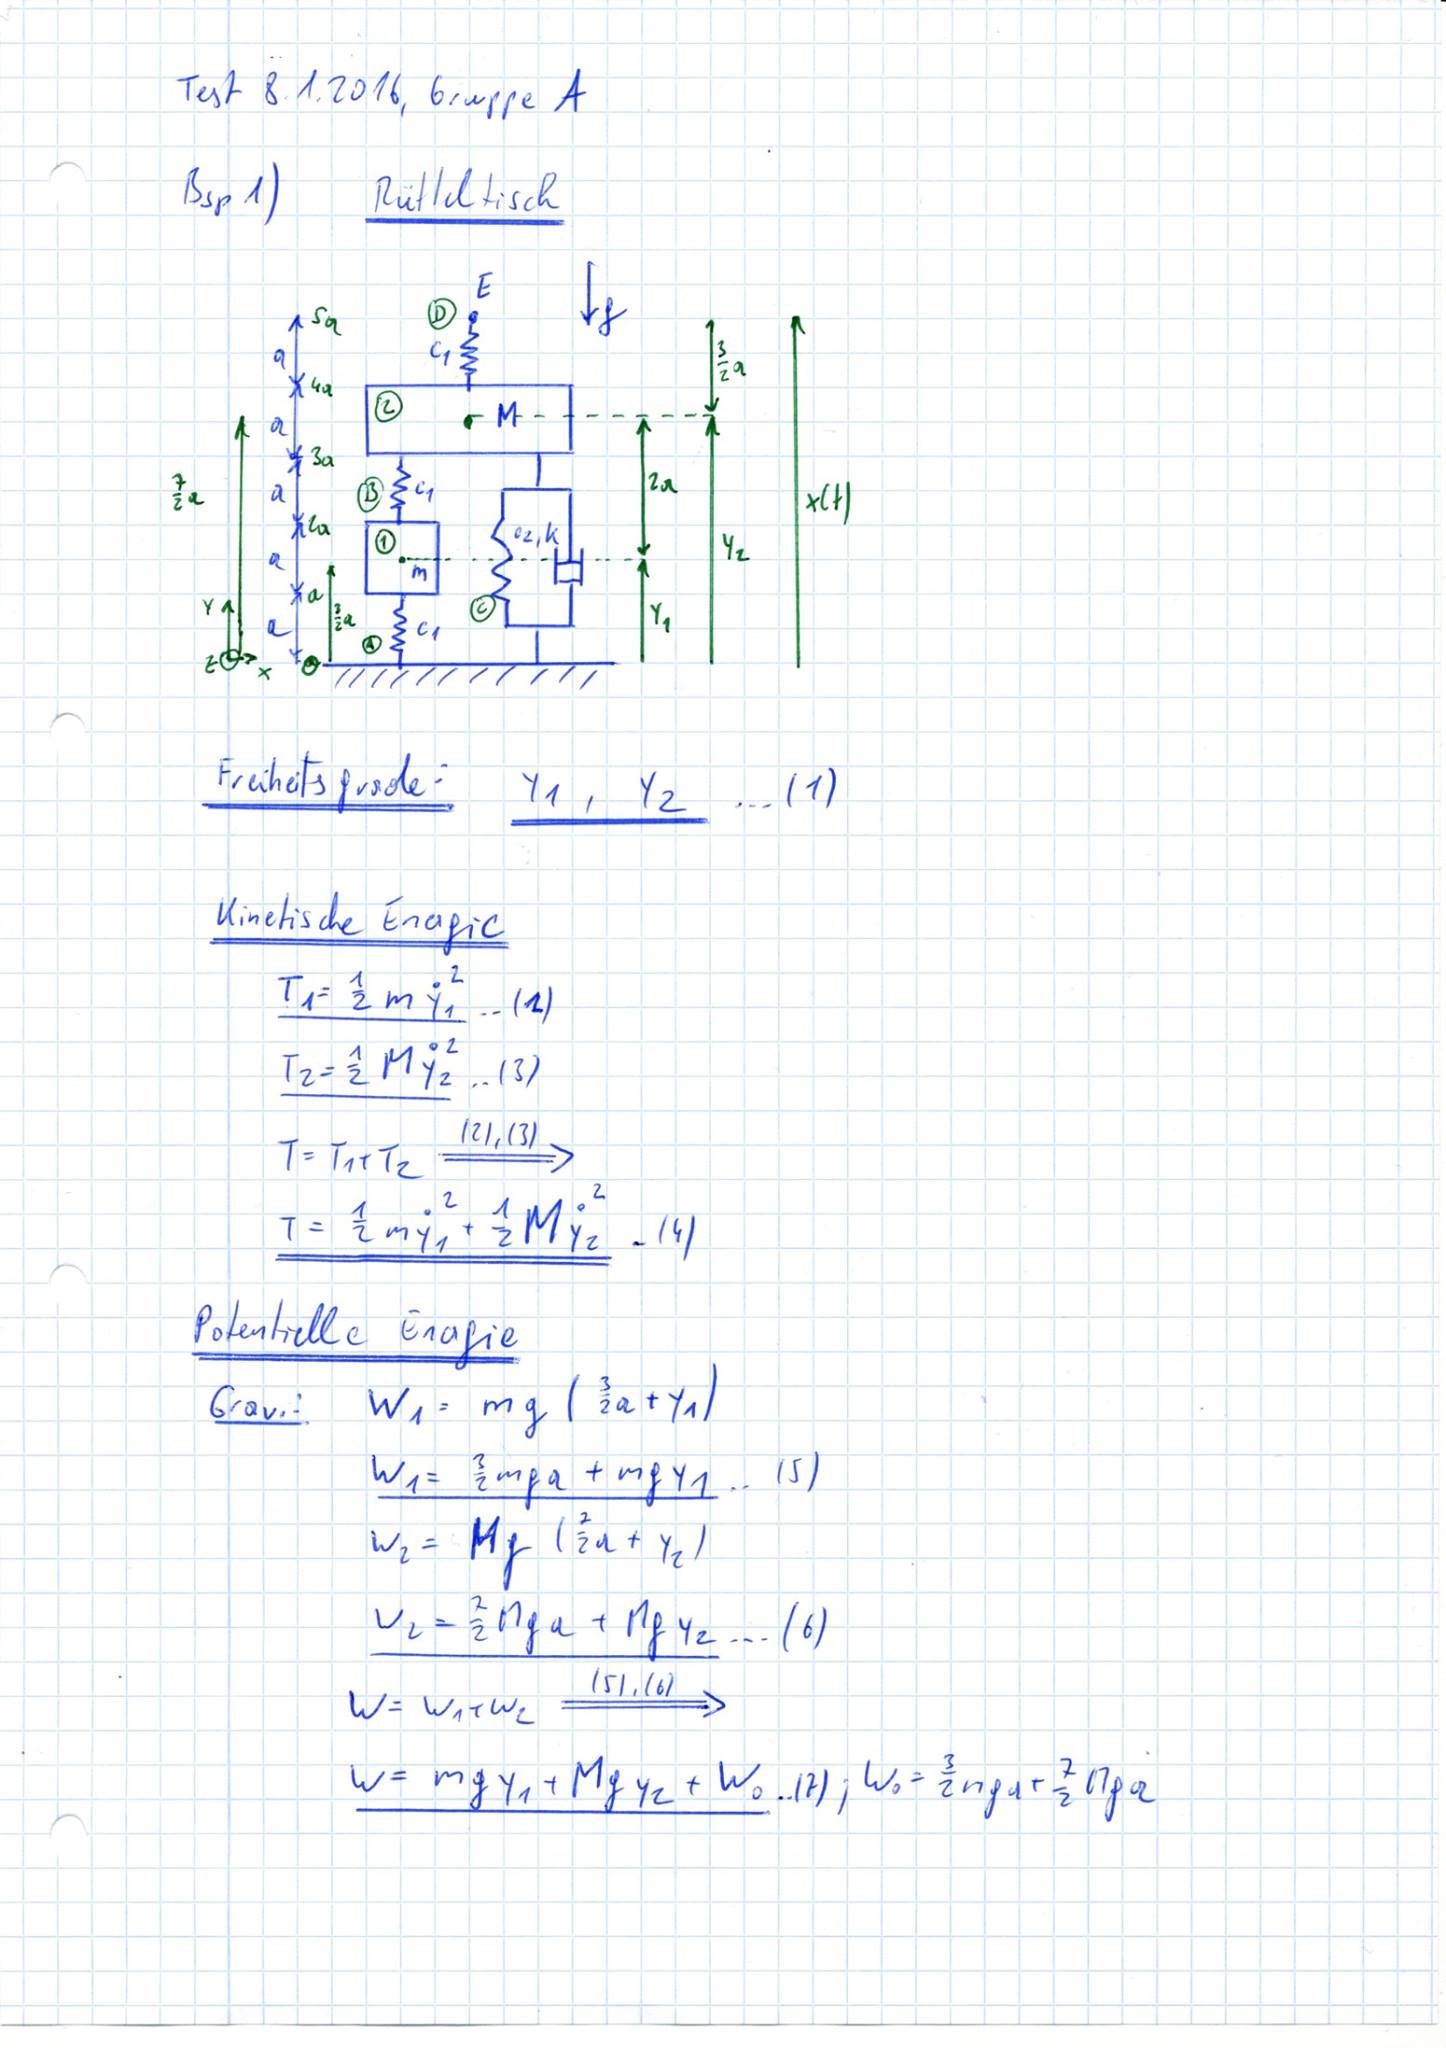 Test 8.1.2016, Gruppe A
Bsp 1) Rütteltisch
E
g
D
5a
c1
a
3/2 a
4a
2
M
a
3a
7/2 a
B
c1
2a
x(t)
a
2a
1
c2, k
y2
m
a
a
3/2 a
C
y1
y
a
A
c1
z
x
0
Freiheitsgrade: y1, y2 ...(1)
Kinetische Energie
T1 = 1/2 m ẏ1² ..(2)
T2 = 1/2 M ẏ2² ..(3)
T = T1+T2 (2),(3) ⟹
T = 1/2 m ẏ1² + 1/2 M ẏ2² ..(4)
Potentielle Energie
Gravi: W1 = mg (3/2 a + y1)
W1 = 3/2 mga + mg y1 .. (5)
W2 = Mg (7/2 a + y2)
W2 = 7/2 Mga + Mg y2 ... (6)
W = W1+W2 (5),(6) ⟹
W = mg y1 + Mg y2 + W0 ..(7) ; W0 = 3/2 mga + 7/2 Mga